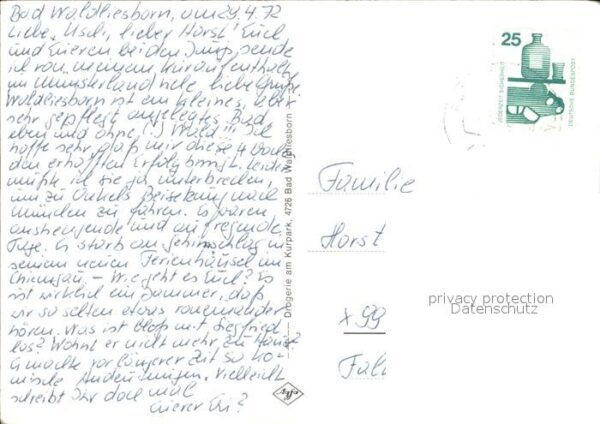 Bad Waldliesborn, am 29.4.72
Liebe Uschi, lieber Horst! Euch
und Eueren beiden Jungs sende
ich von meinem Kuraufenthalt
im Münsterland viele liebe Grüße.
Waldliesborn ist ein kleines, aber
sehr gepflegt angelegtes Bad
eben und ohne Wald!!! Ich
hoffe sehr, daß mir diese 4 Wochen
den erhofften Erfolg bringt. Leider
mußte ich sie ja unterbrechen,
um zu Onkels Beisetzung nach
München zu fahren. Es waren
anstrengende und aufregende
Tage. Er starb am Gehirnschlag in
seinem neuen Ferienhäusel im
Chiemgau. – Wie geht es Euch? Es
ist wirklich ein Jammer, daß
wir so selten etwas voneinander
hören. Was ist bloß mit Siegfried
los? Wohnt er nicht mehr zu Haus?
Er machte vor längerer Zeit so ko-
mische Andeutungen. Vielleicht
schreibt Ihr doch mal
Euerer
Drogerie am Kurpark, 4726 Bad Waldliesborn
Agfa
25
JEDERZEIT SICHERHEIT
DEUTSCHE BUNDESPOST
Familie
Horst
x 99
privacy protection
Datenschutz